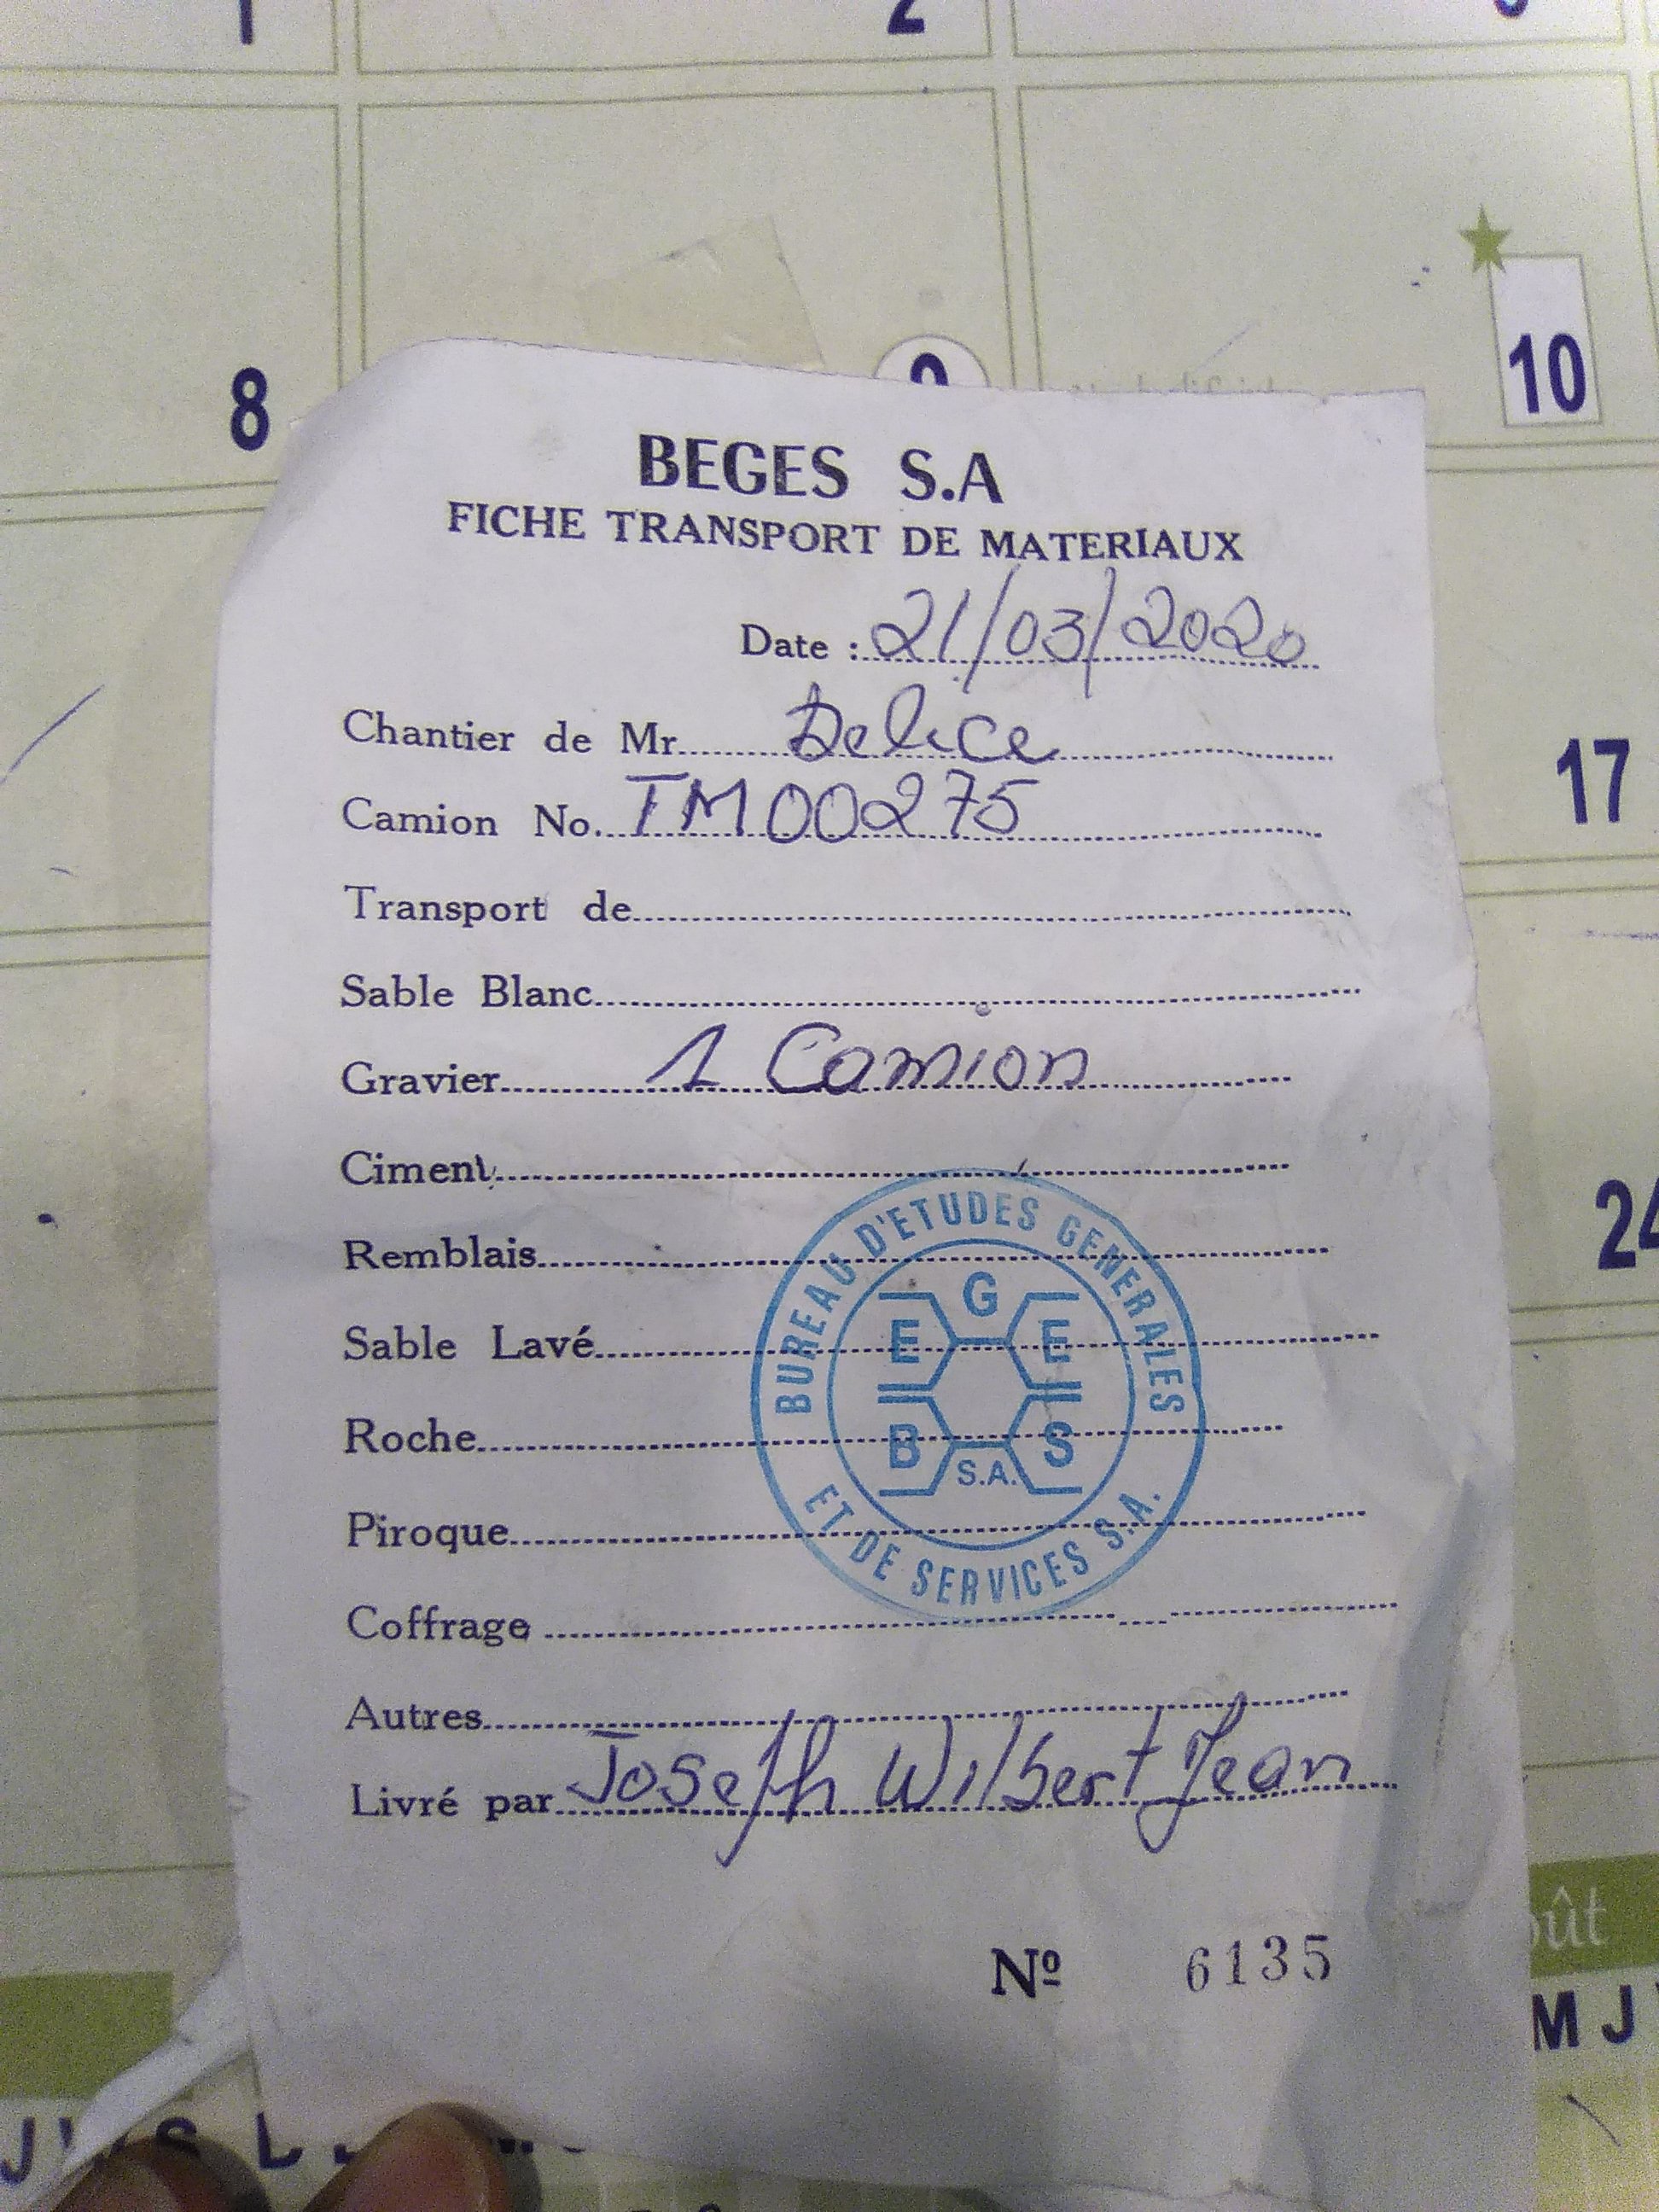 1
2
8
10
17
24
BEGES S.A
FICHE TRANSPORT DE MATERIAUX
Date : 21/03/2020
Chantier de Mr Delice
Camion No. TM00275
Transport de
Sable Blanc
Gravier 1 Camion
Ciment
Remblais
Sable Lavé
Roche
Piroque
Coffrage
Autres
Livré par Joseph Wilbert Jean
Nº 6135
BUREAU D'ETUDES GENERALES
ET DE SERVICES S.A.
G
E E
B S
S.A.
M J